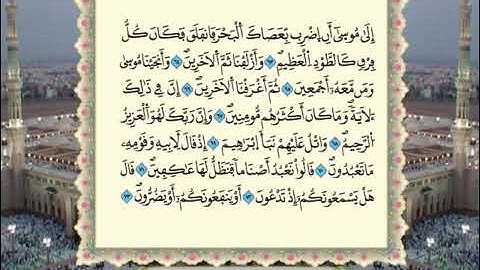 إِلَىٰ مُوسَىٰ أَنِ اِضْرِب بِّعَصَاكَ اَ۬لْبَحْرَ فَانفَلَقَ فَكَانَ كُلُّ
فِرْقٖ كَالطَّوْدِ اِ۬لْعَظِيمِۖ ٦٣ وَأَزْلَفْنَا ثَمَّ اَ۬لَاخَرِينَۖ ٦٤ وَأَنجَيْنَا مُوسَىٰ
وَمَن مَّعَهُۥٓ أَجْمَعِينَ ٦٥ ثُمَّ أَغْرَقْنَا اَ۬لَاخَرِينَۖ ٦٦ إِنَّ فِي ذَٰلِكَ
لَأٓيَةٗۖ وَمَا كَانَ أَكْثَرُهُم مُّومِنِينَۖ ٦٧ وَإِنَّ رَبَّكَ لَهُوَ اَ۬لْعَزِيزُ
اُ۬لرَّحِيمُۖ ٦٨ وَاتْلُ عَلَيْهِمْ نَبَأَ اِبْرَٰهِيمَ ٦٩ إِذْ قَالَ لِأَبِيهِ وَقَوْمِهِۦ
مَا تَعْبُدُونَۖ ٧٠ قَالُواْ نَعْبُدُ أَصْنَاماٗ فَنَظَلُّ لَهَا عَٰكِفِينَۖ ٧١ قَالَ
هَلْ يَسْمَعُونَكُمُۥٓ إِذْ تَدْعُونَ ٧٢ أَوْ يَنفَعُونَكُمُۥٓ أَوْ يَضُرُّونَۖ ٧٣